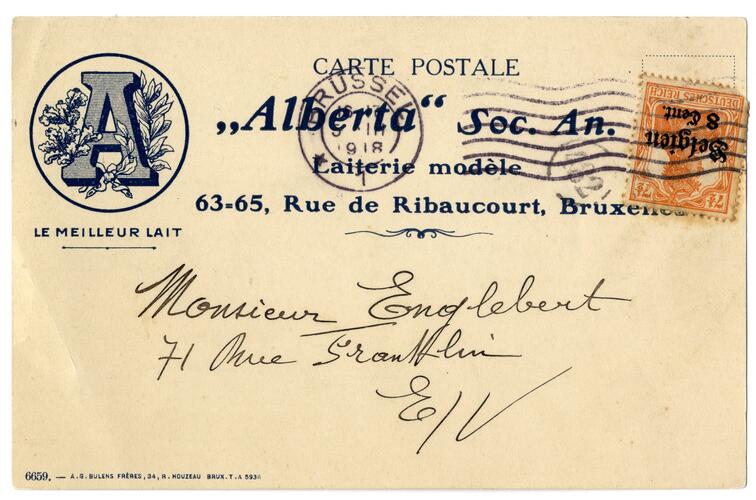 CARTE POSTALE
„Alberta“ Soc. An.
Laiterie modèle
63=65, Rue de Ribaucourt, Bruxelles
A
LE MEILLEUR LAIT
BRUSSEL
1918
1
DEUTSCHES REICH
Belgien
8 Cent.
7½ 7½
Monsieur Englebert
71 Rue Franklin
E/V
6659. — A. G. BULENS FRÈRES, 34, R. HOUZEAU BRUX. T. A 5938